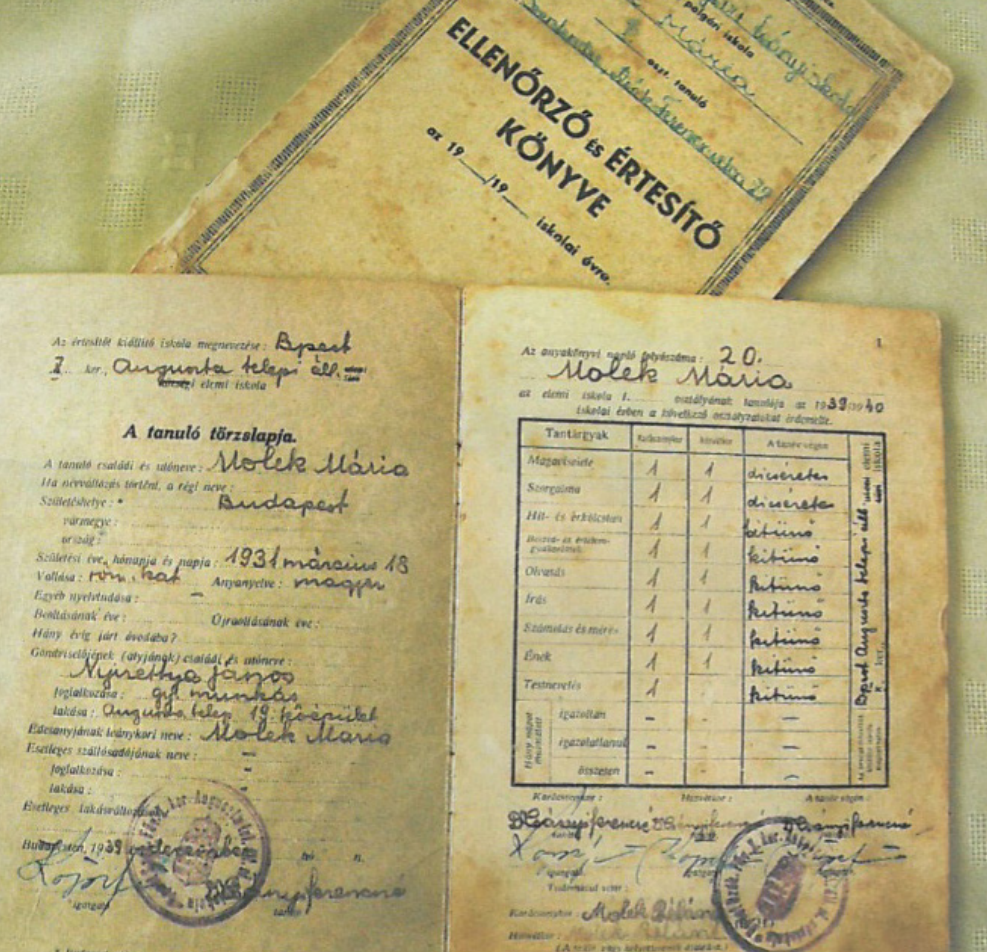 polgári iskola
Mária
I oszt. tanuló
ELLENŐRZŐ ÉS ÉRTESÍTŐ
KÖNYVE
az 19 /19 iskolai évre.
Az értesítőt kiállító iskola megnevezése: Bpest
X. ker., Augusta telepi áll.
községi elemi iskola
A tanuló törzslapja.
A tanuló családi és utóneve: Molek Mária
Ha névváltozás történt, a régi neve:
Születéshelye: Budapest
vármegye:
ország:
Születési éve, hónapja és napja: 1931 március 18
Vallása: róm. kat Anyanyelve: magyar
Egyéb nyelvtudása: -
Beoltásának éve: Újraoltásának éve:
Hány évig járt óvodába?
Gondviselőjének (atyjának) családi és utóneve:
János
foglalkozása: gy. munkás
lakása: Augusta telep 19. kőépület
Édesanyjának leánykori neve: Molek Mária
Esetleges szállásadójának neve: -
foglalkozása: -
lakása: -
Esetleges lakásváltozások
Budapesten, 1939 hó n.
igazgató
1
Az anyakönyvi napló folyószáma: 20.
Molek Mária
az elemi iskola I. osztályának tanulója az 1939/1940
iskolai évben a következő osztályzatokat érdemelte.
Tantárgyak karácsonykor húsvétkor A tanév végén
Magaviselete 1 1 dicséretes
Szorgalma 1 1 dicséretes
Hit- és erkölcstan 1 1 kitünő
Beszéd- és értelemgyakorlatok 1 1 kitünő
Olvasás 1 1 kitünő
Írás 1 1 kitünő
Számolás és mérés 1 1 kitünő
Ének 1 1 kitünő
Testnevelés 1 kitünő
Hány napot mulasztott
igazoltan - -
igazolatlanul - -
összesen - -
Bpest Augusta telepi áll. elemi iskola
X. ker.,
Karácsonykor: Húsvétkor: A tanév végén:
igazgató
Tudomásul vette:
Karácsonykor: Molek
Húsvétkor: Molek